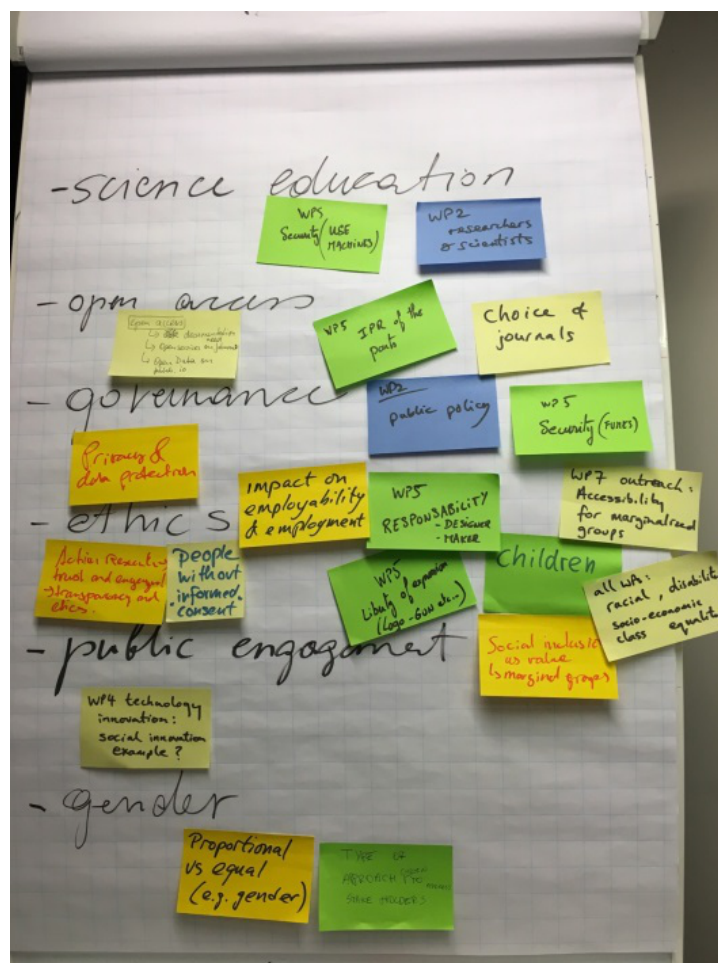 - science education
WP5
Security (USE
MACHINES)
WP2
researchers
& scientists
- open access
open access
documentation
Open Data
WP5 IPR of the
parts
Choice of
journals
- governance
WP2
public policy
WP5
Security (FUNES)
Privacy &
data protection
impact on
employability
& employment
WP5
RESPONSABILITY
- DESIGNER
- MAKER
WP7 outreach:
Accessibility
for marginalised
groups
- ethics
Action Research,
trust and engagement
transparency and
ethics.
People
without
informed
consent
WP5
Liberty of expression
(Logo - GUN etc...)
Children
all WPs:
racial, disability
socio-economic
class equality
- public engagement
Social inclusio
as value
marginal groups
WP4 technology
innovation:
social innovation
example?
- gender
Proportional
vs equal
(e.g. gender)
TYPE OF
APPROACH TO
STAKE HOLDERS